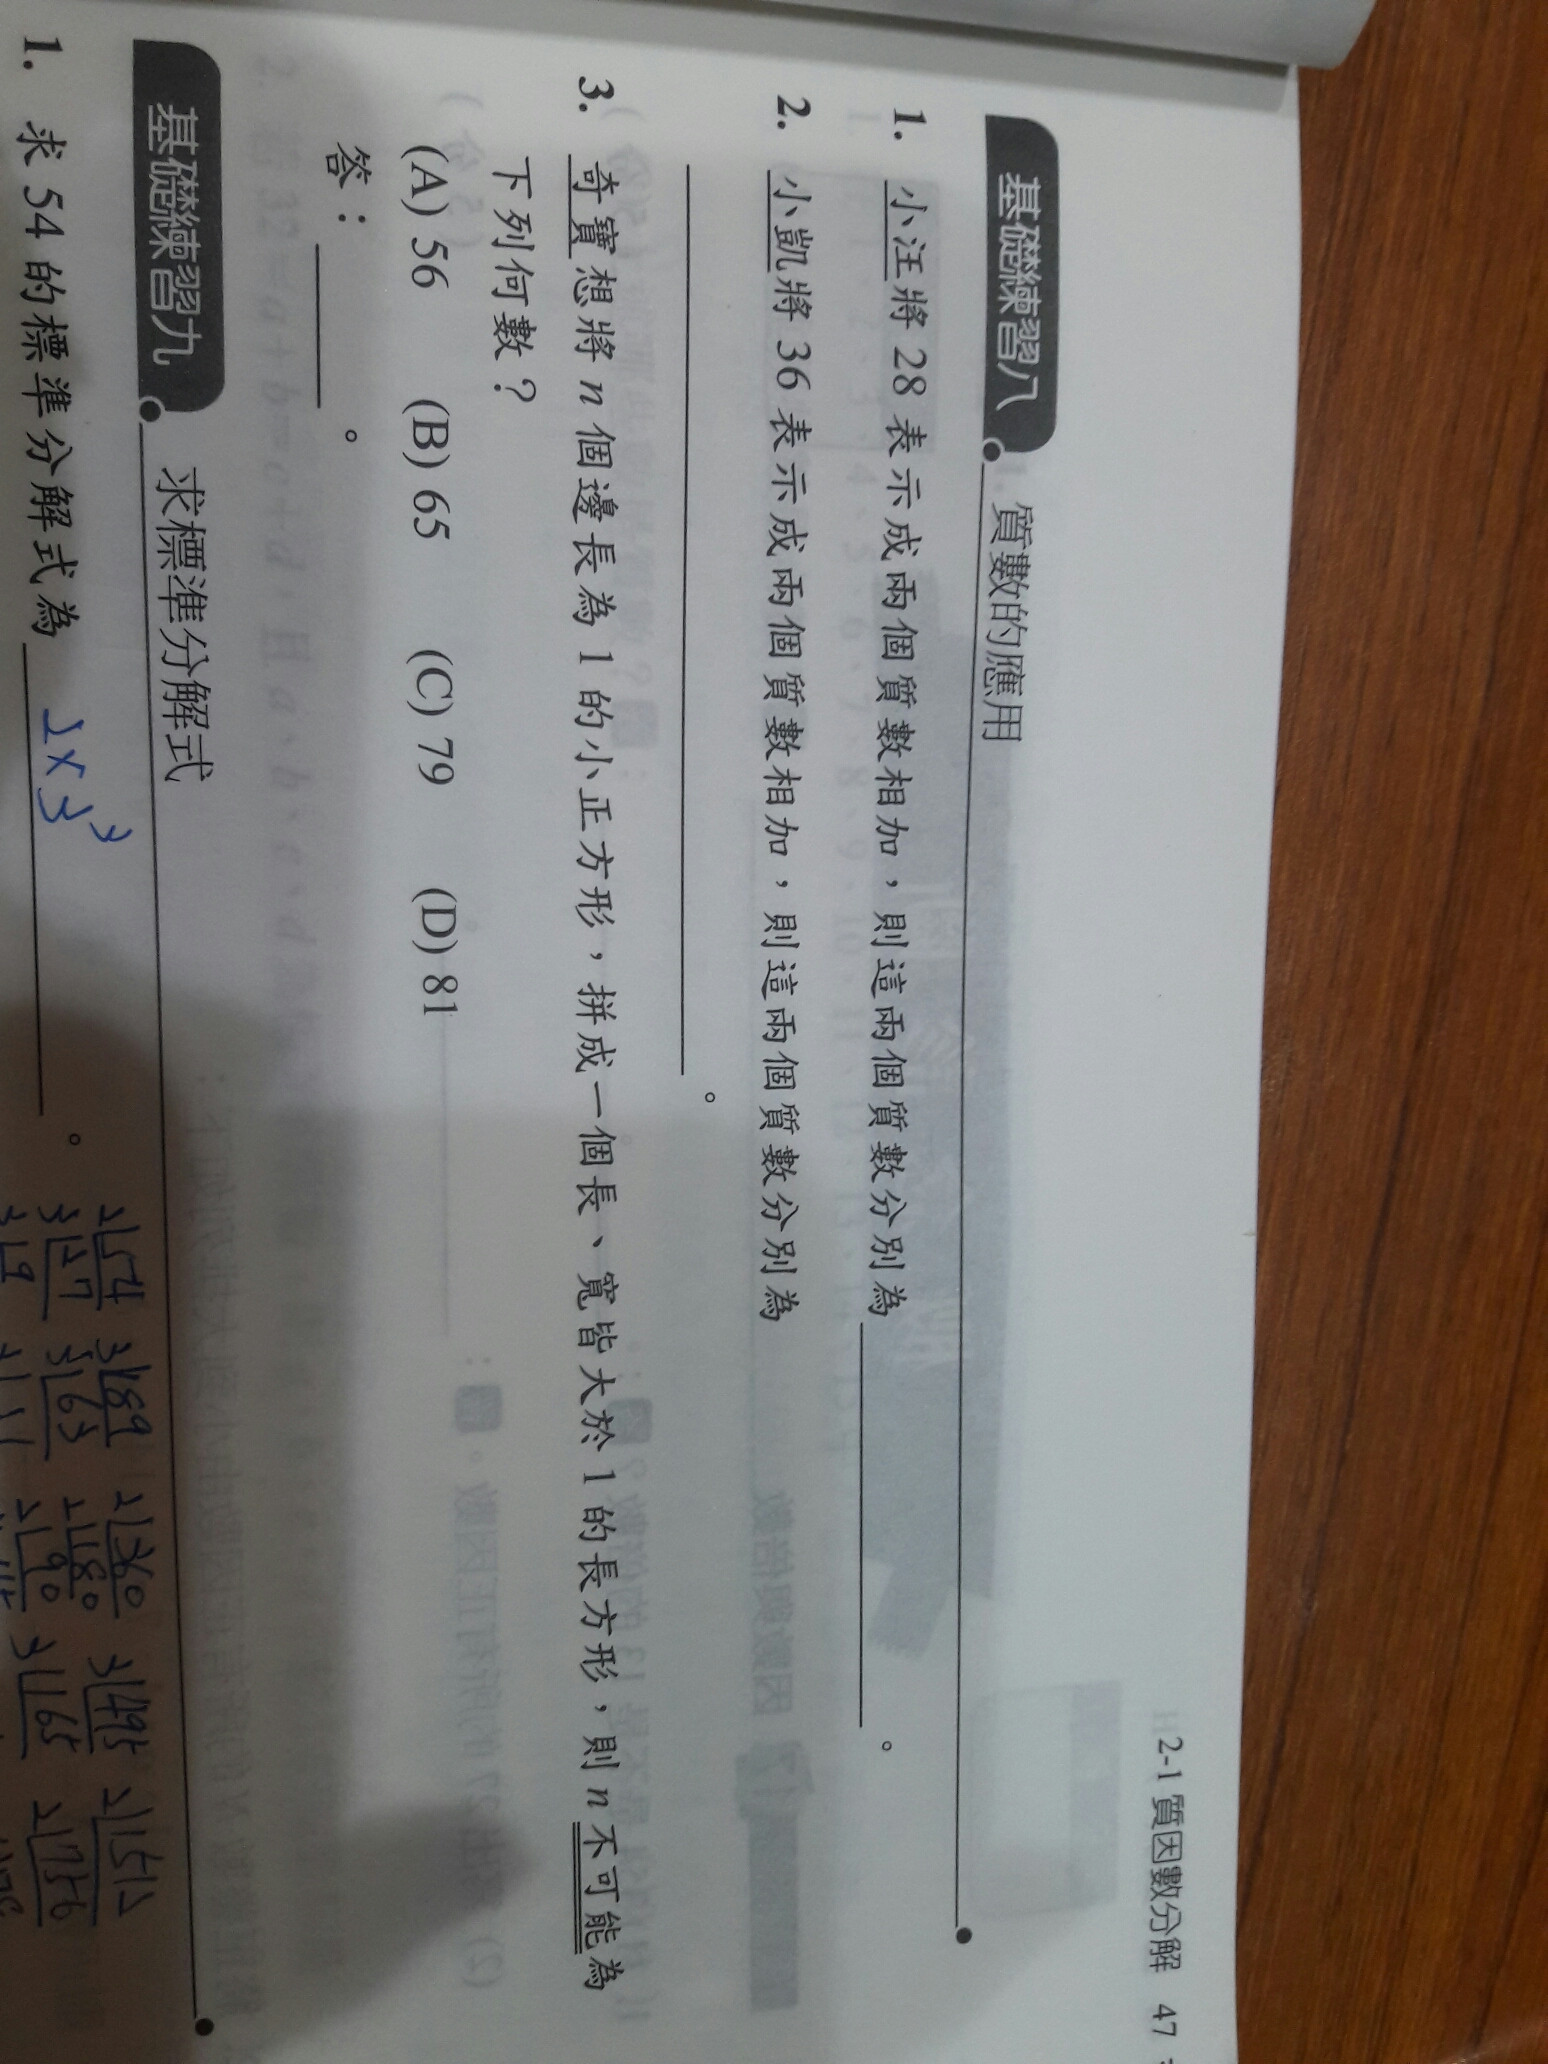 2-1 質因數分解 47
基礎練習八 質數的應用
1. 小汪將 28 表示成兩個質數相加，則這兩個質數分別為 。
2. 小凱將 36 表示成兩個質數相加，則這兩個質數分別為
。
3. 奇寶想將 n 個邊長為 1 的小正方形，拼成一個長、寬皆大於 1 的長方形，則 n 不可能為
下列何數？
(A) 56 (B) 65 (C) 79 (D) 81
答： 。
基礎練習九 求標準分解式
1. 求 54 的標準分解式為 2×3³ 。
2 54 3 189 2 360 3 495 2 1512
3 27 3 63 2 180 3 165 2 756
3 9 2 90